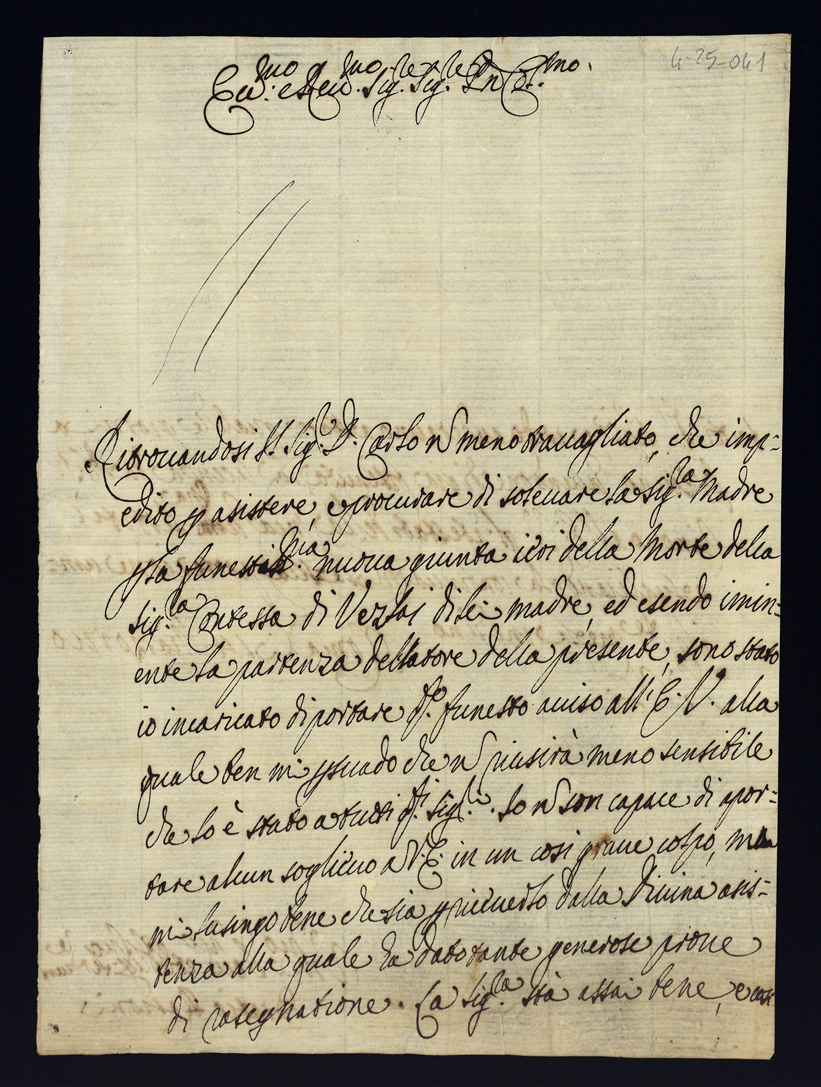 4-25-041
Ecc.mo e Rev.mo Sig.re Sig.re Pn Col.mo
Ritrouandosi Sig.r D. Carlo ñ meno trauagliato, che imp-
edito p asistere e procurare di soleuare la Sig.ra Madre
p la funestissima nuoua giunta ieri della Morte della
Sig.ra Contessa di di lei madre, ed esendo imin-
ente la partenza del latore della presente, sono stato
io incaricato di portare q.to funesto auiso all' E. V. alla
quale ben mi psuado che ñ riusirà meno sensibile
che lo è stato a tutti q.ti Sig.ri. Io ñ son capace di apor-
tare alcun soglieuo a V. E. in un cosi graue colpo, ma
mi lusingo bene che sia p riceuerlo dalla Diuina asis-
tenza alla quale ha dato tante generose proue
di rasegnatione. La Sig.ra stà assai bene, e cosi